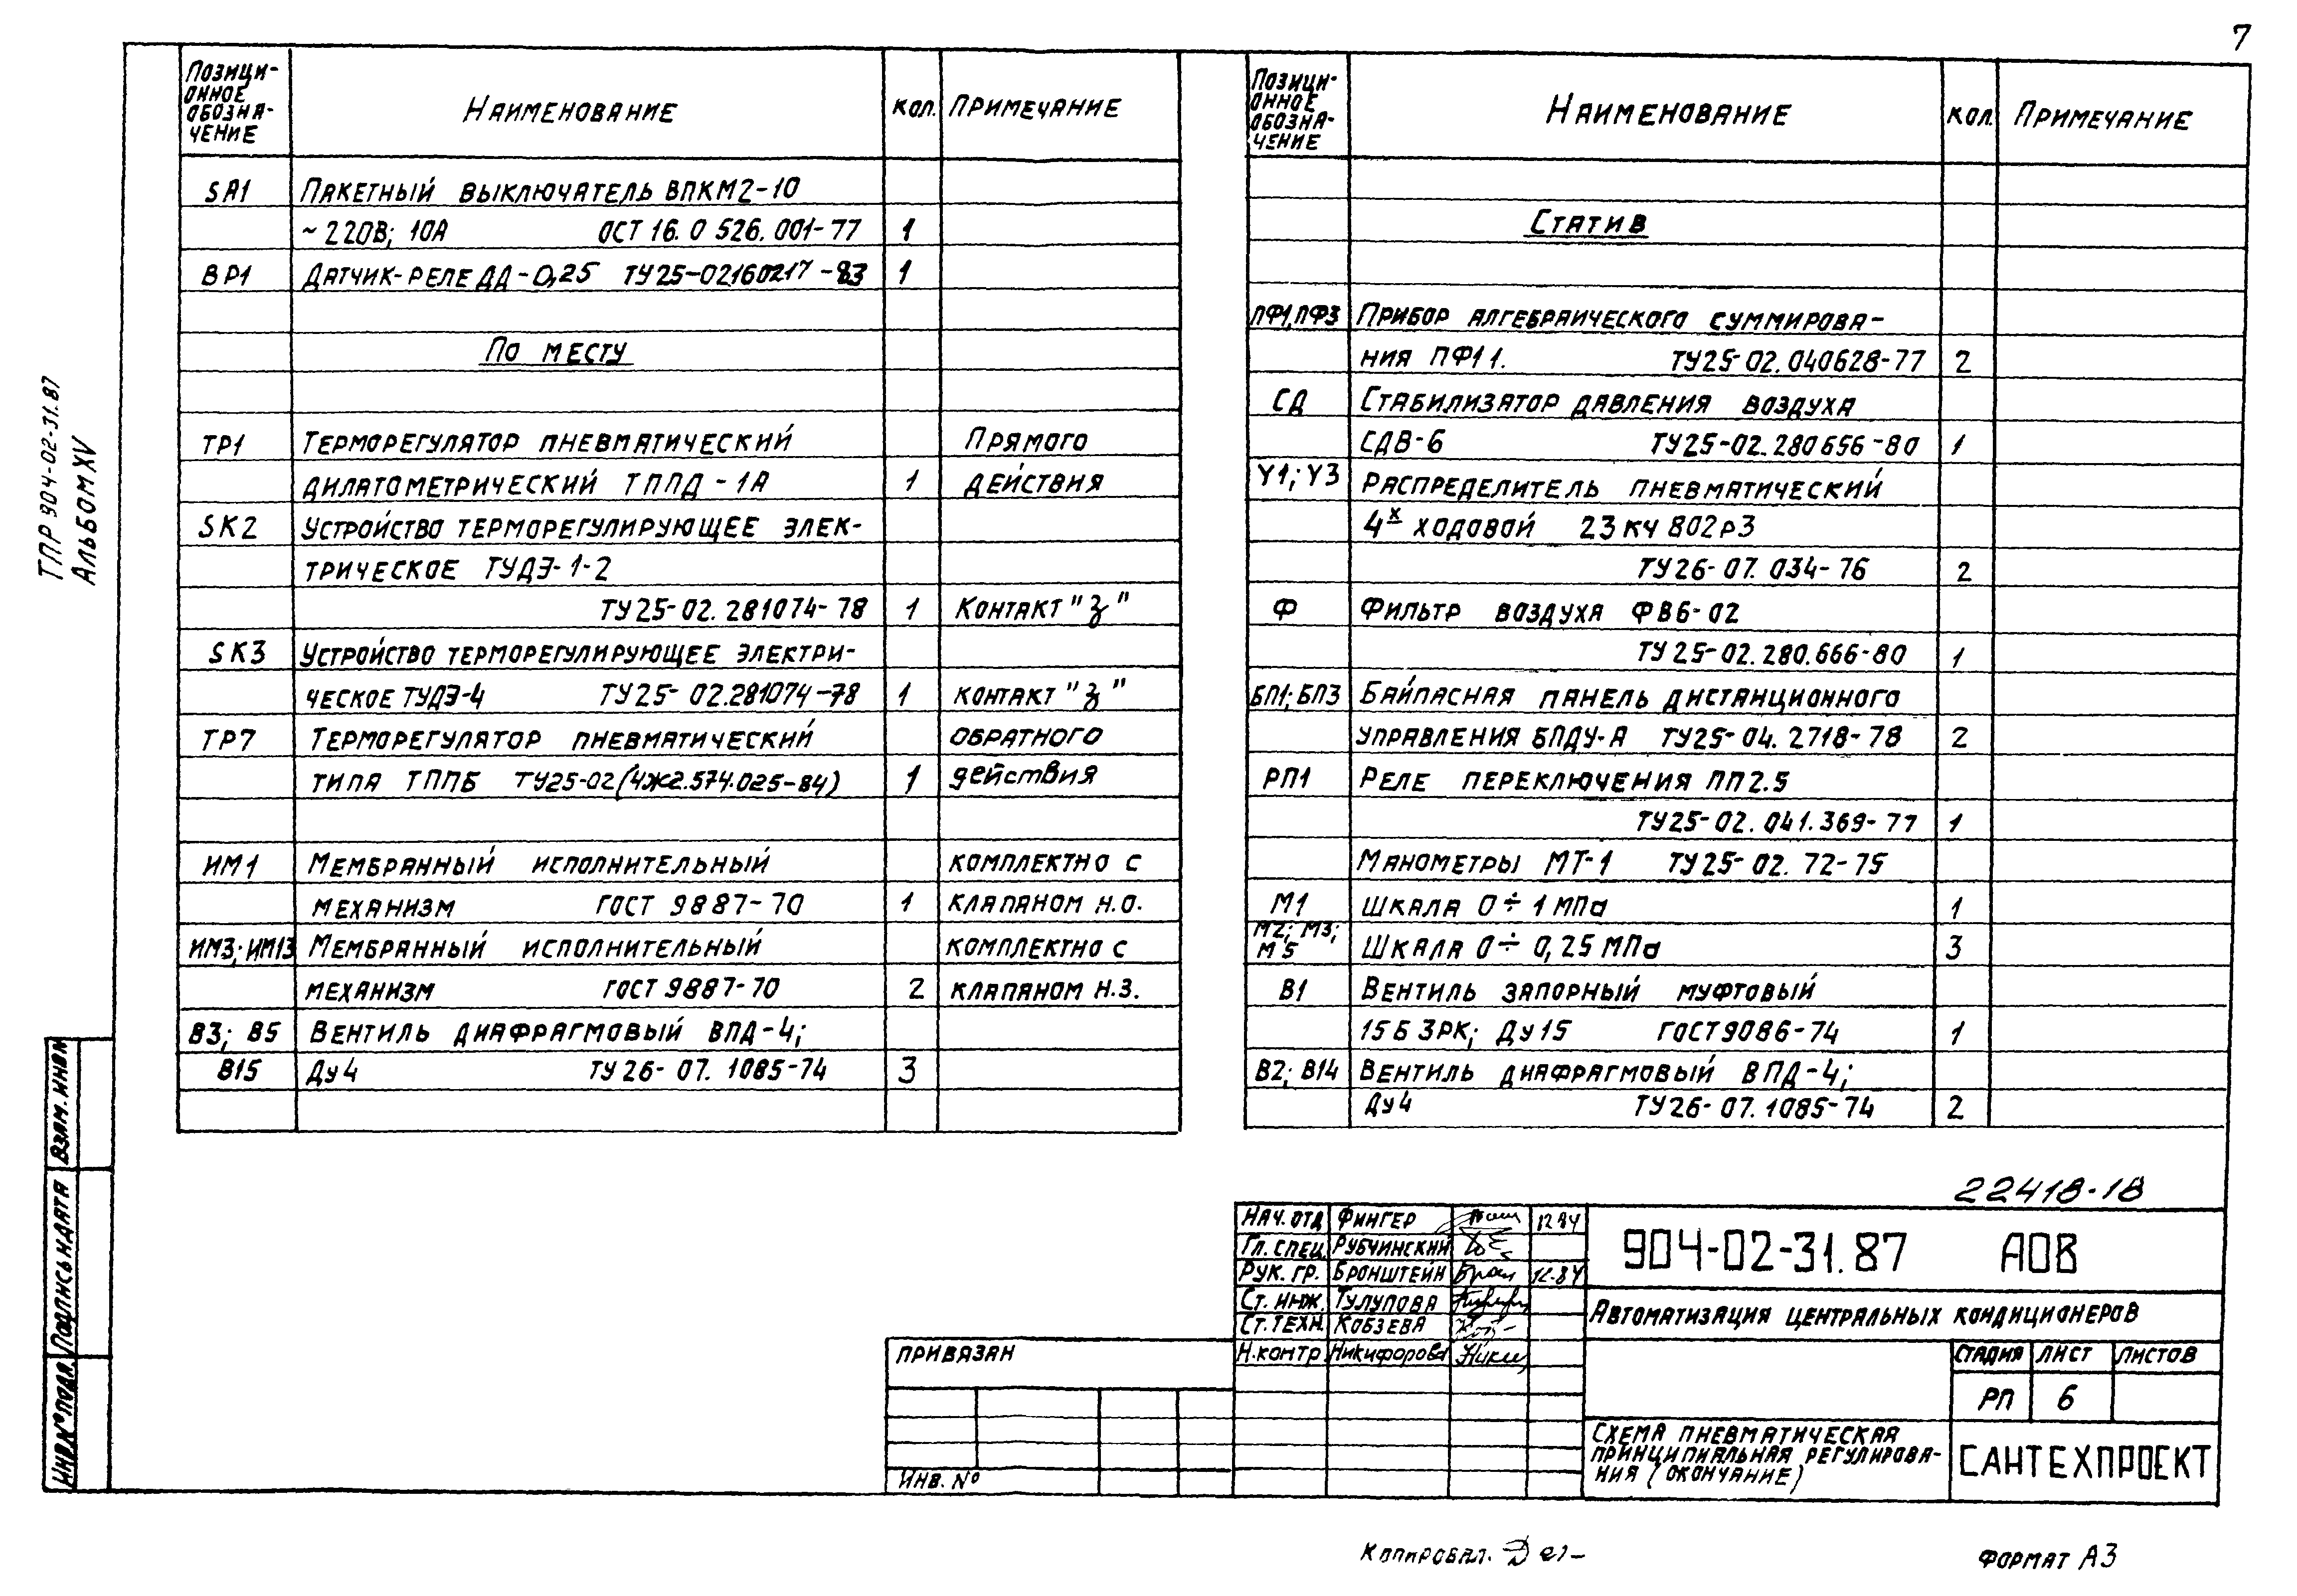 7
ТПР 904-02-31.87
Альбом XV
Позици-
онное
обозна-
чение
Наименование
Кол.
Примечание
SA1 Пакетный выключатель ВПКМ2-10
~220В; 10А ОСТ 16.0 526.001-77 1
ВР1 Датчик-реле ДД-0,25 ТУ25-02160217-83 1
По месту
ТР1 Терморегулятор пневматический Прямого
дилатометрический ТППД-1А 1 действия
SK2 Устройство терморегулирующее элек-
трическое ТУДЭ-1-2
ТУ25-02.281074-78 1 Контакт "з"
SK3 Устройство терморегулирующее электри-
ческое ТУДЭ-4 ТУ25-02.281074-78 1 контакт "з"
ТР7 Терморегулятор пневматический обратного
типа ТППБ ТУ25-02(4Ж2.574.025-84) 1 действия
ИМ1 Мембранный исполнительный комплектно с
механизм ГОСТ 9887-70 1 клапаном н.о.
ИМ3; ИМ13 Мембранный исполнительный комплектно с
механизм ГОСТ 9887-70 2 клапаном н.з.
В3; В5 Вентиль диафрагмовый ВПД-4;
В15 Ду4 ТУ26-07.1085-74 3
Позици-
онное
обозна-
чение
Наименование
Кол.
Примечание
Статив
ПФ1,ПФ3 Прибор алгебраического суммирова-
ния ПФ11. ТУ25-02.040628-77 2
СД Стабилизатор давления воздуха
СДВ-6 ТУ25-02.280656-80 1
Y1; Y3 Распределитель пневматический
4х ходовой 23кч802р3
ТУ26-07.034-76 2
Ф Фильтр воздуха ФВ6-02
ТУ25-02.280.666-80 1
БП1; БП3 Байпасная панель дистанционного
управления БПДУ-А ТУ25-04.2718-78 2
РП1 Реле переключения ПП2.5
ТУ25-02.041.369-77 1
Манометры МТ-1 ТУ25-02.72-75
М1 Шкала 0÷1 МПа 1
М2; М3;
М5 Шкала 0÷0,25 МПа 3
В1 Вентиль запорный муфтовый
15Б3РК; Ду15 ГОСТ9086-74 1
В2; В14 Вентиль диафрагмовый ВПД-4;
Ду4 ТУ26-07.1085-74 2
22418-18
Нач. отд Фингер 12.84
Гл. спец. Рубчинский
Рук. гр. Бронштейн 12.84
Ст. инж. Тулупова
Ст. техн. Кобзева
Н.контр Никифорова
904-02-31.87 АОВ
Автоматизация центральных кондиционеров
Стадия Лист Листов
РП 6
Схема пневматическая
принципиальная регулирова-
ния (окончание)
САНТЕХПРОЕКТ
Привязан
Инв. №
Взам. инв №
Подпись и дата
Инв. № подл.
Копировал.
Формат А3